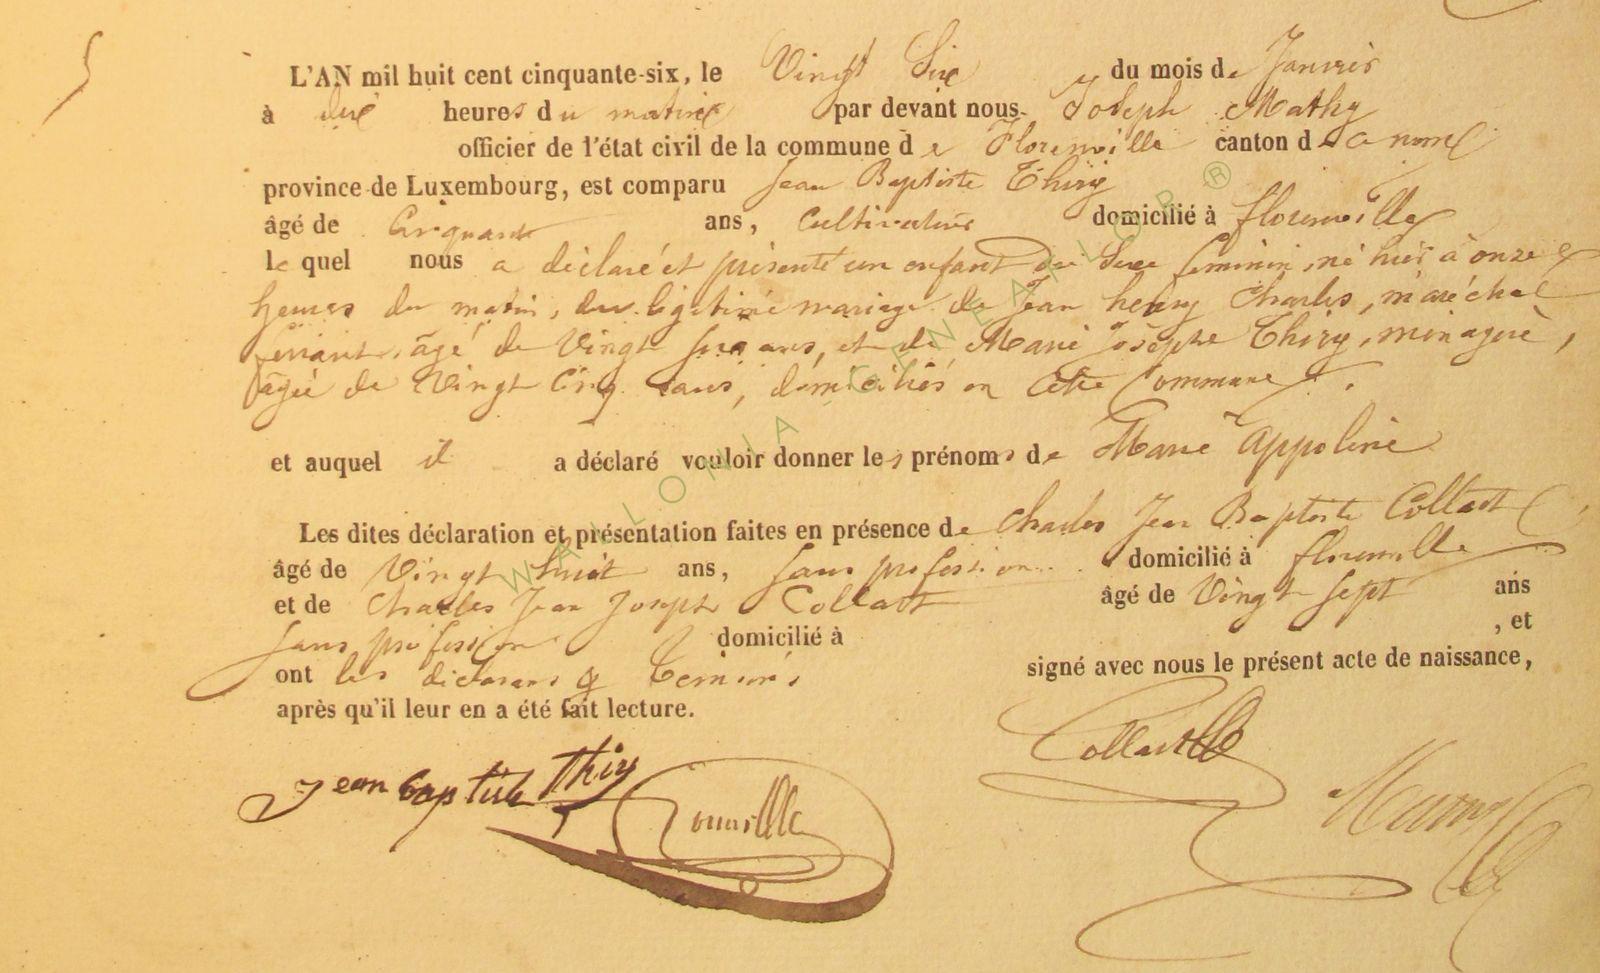 L'AN mil huit cent cinquante-six, le Vingt Six du mois de Janvier
à dix heures du matin par devant nous Joseph Mathy
officier de l'état civil de la commune de Florenville canton de
province de Luxembourg, est comparu Jean Baptiste Thiry
âgé de Cinquante ans, Cultivateur domicilié à florenville
le quel nous a déclaré et présenté un enfant du Sexe feminin, né hier à onze
heures du matin, du légitime mariage de Jean henry Charles, maréchal
ferrant, âgé de Vingt Six ans, et de Marie Josephe Thiry, ménagere,
âgée de Vingt Cinq ans, domiciliés en cette Commune.
et auquel il a déclaré vouloir donner les prénoms de Marie Appoline
Les dites déclaration et présentation faites en présence de Charles Jean Baptiste Collart
âgé de Vingt huit ans, sans profession domicilié à florenville
et de Charles Jean Joseph Collart âgé de Vingt Sept ans
sans profession domicilié à , et
ont les déclarans & Temoins signé avec nous le présent acte de naissance,
après qu'il leur en a été fait lecture.
Jean baptiste Thiry
Collart
WALLONIA GENEALOR ®